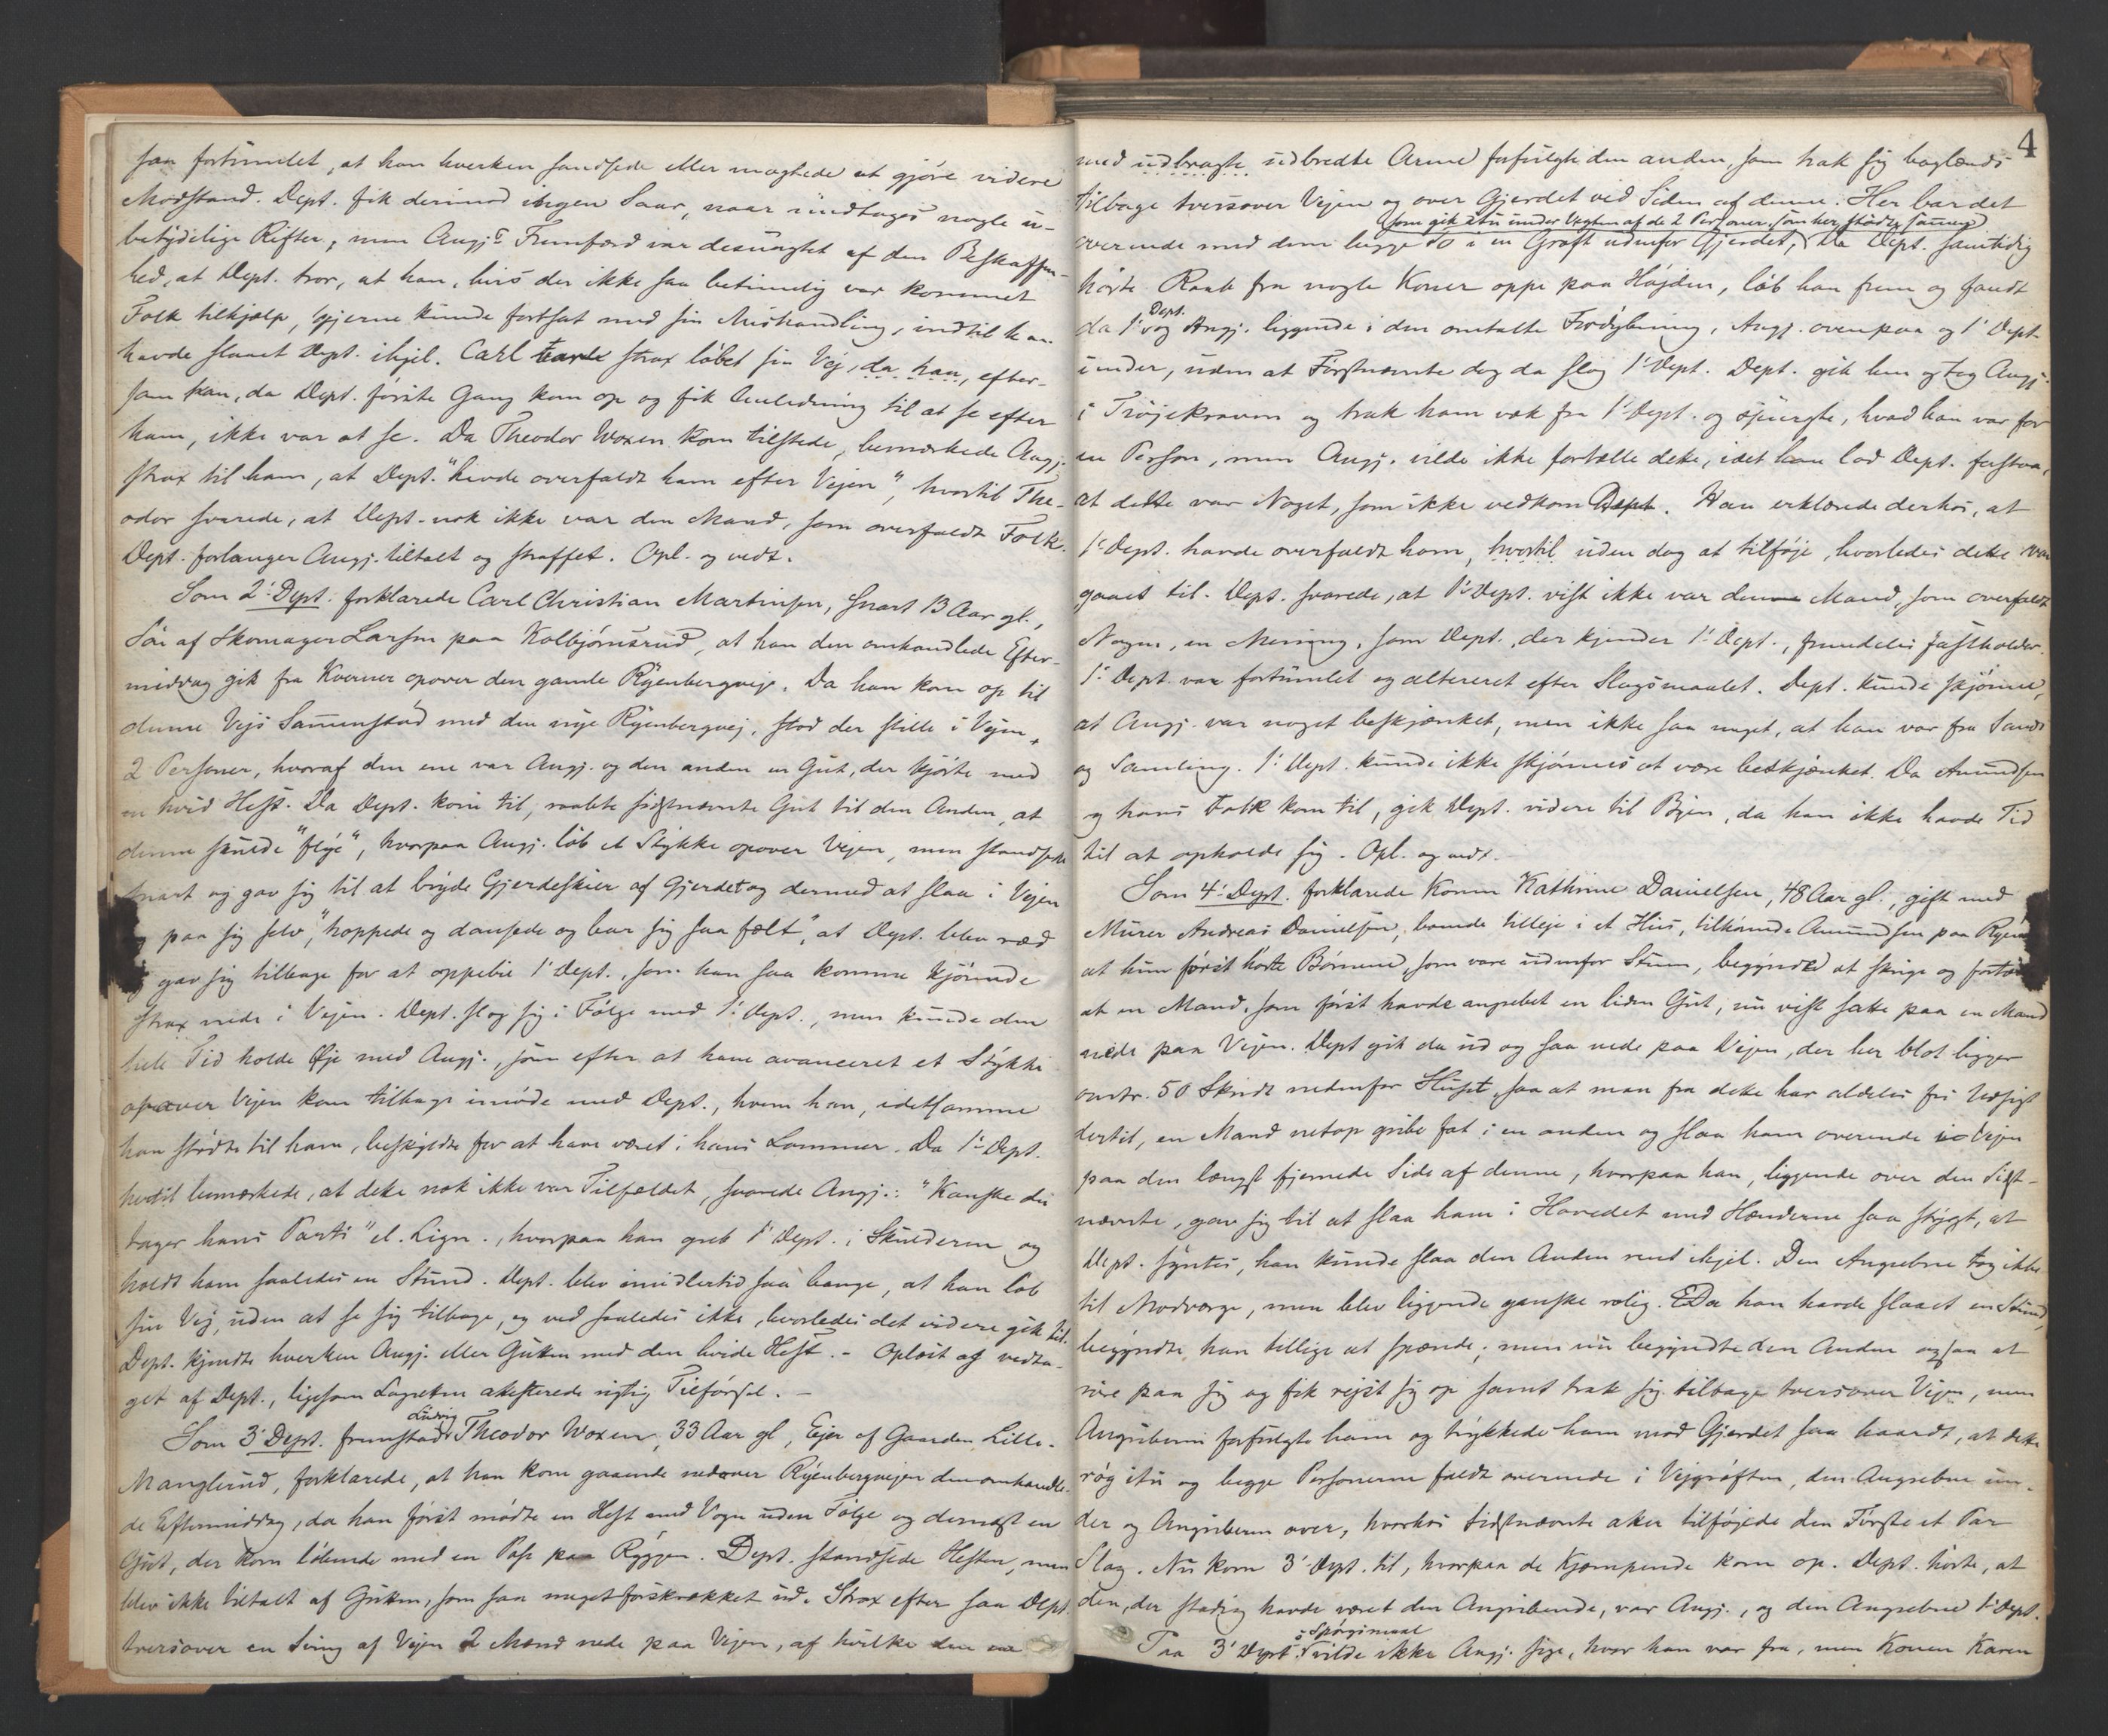 saa fortumlet, at han hverken sandsede eller magtede at gjøre videre
Modstand. Dept. fik derimod ingen Saar, naar undtages nogle u-
betydelige Rifter, men Angj.s Fremfærd var desuagtet af den Beskaffen-
hed, at Dept. tror, at han, hvis der ikke saa betimelig var kommet
Folk tilhjælp, gjerne kunde fortsat med sin Mishandling, indtil han
havde slaaet Dept. ihjel. Carl strax løbet sin Vej, da han, efter-
som han, da Dept. første Gang kom op og fik Anledning til at se efter
ham, ikke var at se. Da Theodor Woxen kom tilstede, bemærkede Angj.
strax til ham, at Dept. "havde overfaldt ham efter Vejen", hvortil The-
odor svarede, at Dept. nok ikke var den Mand, som overfaldt Folk.
Dept. forlanger Angj. tiltalt og straffet. Opl. og vedt.
Som 2' Dept. forklarede Carl Christian Martinsen, snart 13 Aar gl.,
Søn af Skomager Larsen paa Kolbjørnsrud, at han den omhandlede Efter-
middag gik fra Kværner opover den gamle Ryenbergvej. Da han kom op til
denne Vejs Sammenstød med den nye Ryenbergvej, stod der stille i Vejen
2 Personer, hvoraf den ene var Angj. og den anden en Gut, der kjørte med
en hvid Hest. Da Dept. kom til, raabte sidstnævnte Gut til den Anden, at
denne skulde "flye", hvorpaa Angj. løb et Stykke opover Vejen, men standsede
snart og gav sig til at bryde Gjerdeskier af Gjerdet og dermed at slaa i Vejen
og paa sig selv, "hoppede og dansede og bar sig saa fælt", at Dept. blev ræd
og gav sig tilbage for at oppebie 1' Dept., som han saa komme kjørende
strax nede i Vejen. Dept. slog sig i Følge med 1' Dept., men kunde den
hele Tid holde Øje med Angj., som efter at have avanceret et Stykke
opover Vejen kom tilbage imøde med Dept., hvem han, idetsamme
han stødte til ham, beskyldte for at have været i hans Lommer. Da 1' Dept.
hertil bemærkede, at dette nok ikke var Tilfældet, svarede Angj.: "Kanske du
tager hans Parti" el. Lign., hvorpaa han greb 1' Dept. i Skulderen og
holdt ham saaledes en Stund. Dept. blev imidlertid saa bange, at han løb
sin Vej, uden at se sig tilbage, og ved saaledes ikke, hvorledes det videre gik til.
Dept. kjendte hverken Angj. eller Gutten med den hvide Hest. - Oplæst og vedta-
get af Dept., ligesom Lagretten attesterede rigtig Tilførsel. -
Som 3' Dept. fremstod Ludvig Theodor Woxen, 33 Aar gl, Ejer af Gaarden Lille-
Manglerud, forklarede, at han kom gaaende nedover Ryenbergvejen den omhandle-
de Eftermiddag, da han først mødte en Hest med Vogn uden Følge og dernæst en
Gut, der kom løbende med en Pose paa Ryggen. Dept. standsede Hesten, men
blev ikke tiltalt af Gutten, som saa meget forskrækket ud. Strax efter saa Dept.
tversover en Sving af Vejen 2 Mænd nede paa Vejen, af hvilke den ene
4
med udbragte udbredte Arme forfulgte den anden, som trak sig baglænds
tilbage tversover Vejen og over Gjerdet ved Siden af denne. Her bar det
som gik itu under Vægten af de 2 Personer, som her stødte sammen
overende med dem begge to i en Grøft udenfor Gjerdet, Da Dept. samtidig
hørte Raab fra nogle Koner oppe paa Højden, løb han frem og fandt
da 1' Dept. og Angj. liggende i den omtalte Fordybning, Angj. ovenpaa og 1' Dept.
under, uden at Førstnævnte dog da slog 1' Dept. Dept. gik hen og tog Angj.
i Trøjekraven og trak ham væk fra 1' Dept. og spurgte, hvad han var for
en Person, men Angj. vilde ikke fortælle dette, idet han lod Dept. forstaa,
at dette var Noget, som ikke vedkom Dept. Han erklærede derhos, at
1' Dept. havde overfaldt ham, hvortil uden dog at tilføje, hvorledes dette var
gaaet til. Dept. svarede, at 1' Dept. vist ikke var den Mand, som overfaldt
Nogen, en Mening, som Dept., der kjender 1' Dept., fremdeles fastholder.
1' Dept. var fortumlet og altereret efter Slagsmaalet. Dept. kunde skjønne,
at Angj. var noget beskjænket, men ikke saa meget, at han var fra Sands
og Samling. 1' Dept. kunde ikke skjønnes at være beskjænket. Da Amundsen
og hans Folk kom til, gik Dept. videre til Byen, da han ikke havde Tid
til at opholde sig. Opl. og vedt.
Som 4' Dept. forklarede Konen Kathrine Danielsen, 48 Aar gl., gift med
Murer Andreas Danielsen, boende tilleje i et Hus, tilhørende Amundsen paa Ryen
at hun først hørte Børnene, som vare udenfor Stuen, begyndte at skrige og
at en Mand, som først havde angrebet en liden Gut, nu vist satte paa en Mand
nede paa Vejen. Dept gik da ud og saa nede paa Vejen, der her blot ligger
omtr. 50 Skridt nedenfor Huset, saa at man fra dette har aldeles fri Udsigt
dertil, en Mand netop gribe fat i en anden og slaa ham overende i Vejen
paa den længst fjernede Side af denne, hvorpaa han, liggende over den Sidst-
nævnte, gav sig til at slaa ham i Hovedet med Hænderne saa stygt, at
Dept. syntes, han kunde slaa den Anden rent ihjel. Den Angrebne tog ikke
til Modværge, men blev liggende ganske rolig. Da han havde slaaet en Stund,
begyndte han tillige at spænde; men nu begyndte den Anden ogsaa at
røre paa sig og fik rejst sig op samt trak sig tilbage tversover Vejen, men
Angriberen forfulgte ham og trykkede ham mod Gjerdet saa haardt, at dette
røg itu og begge Personerne faldt overende i Vejgrøften, den Angrebne un-
der og Angriberen over, hvorhos sidstnævnte atter tilføjede den Første et Par
Slag. Nu kom 3' Dept. til, hvorpaa de Kjæmpende kom op. Dept. hørte, at
den, der stadig havde været den Angribende, var Angj., og den Angrebne 1' Dept.
Paa 3' Dept.s Spørgsmaal vilde ikke Angj. sige, hvor han var fra, men Konen Karen